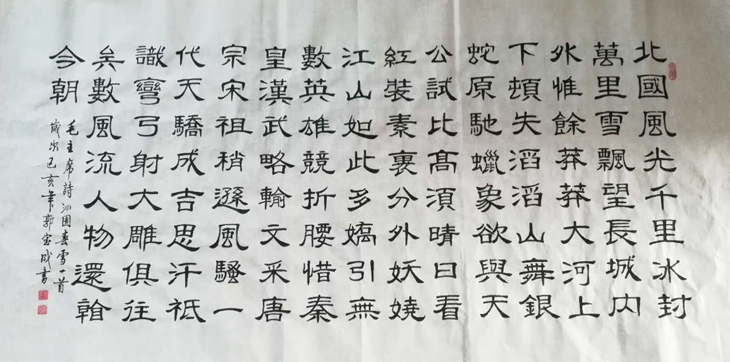 北國風光千里冰封
萬里雪飄望長城内
外惟餘莽莽大河上
下頓失滔滔山舞銀
蛇原馳蠟象欲與天
公試比高須晴日看
紅裝素裹分外妖嬈
江山如此多嬌引無
數英雄競折腰惜秦
皇漢武略輸文采唐
宗宋祖稍遜風騷一
代天驕成吉思汗祗
識彎弓射大雕俱往
矣數風流人物還看
今朝
毛主席詩沁園春雪一首
歲次己亥年郭宝成書